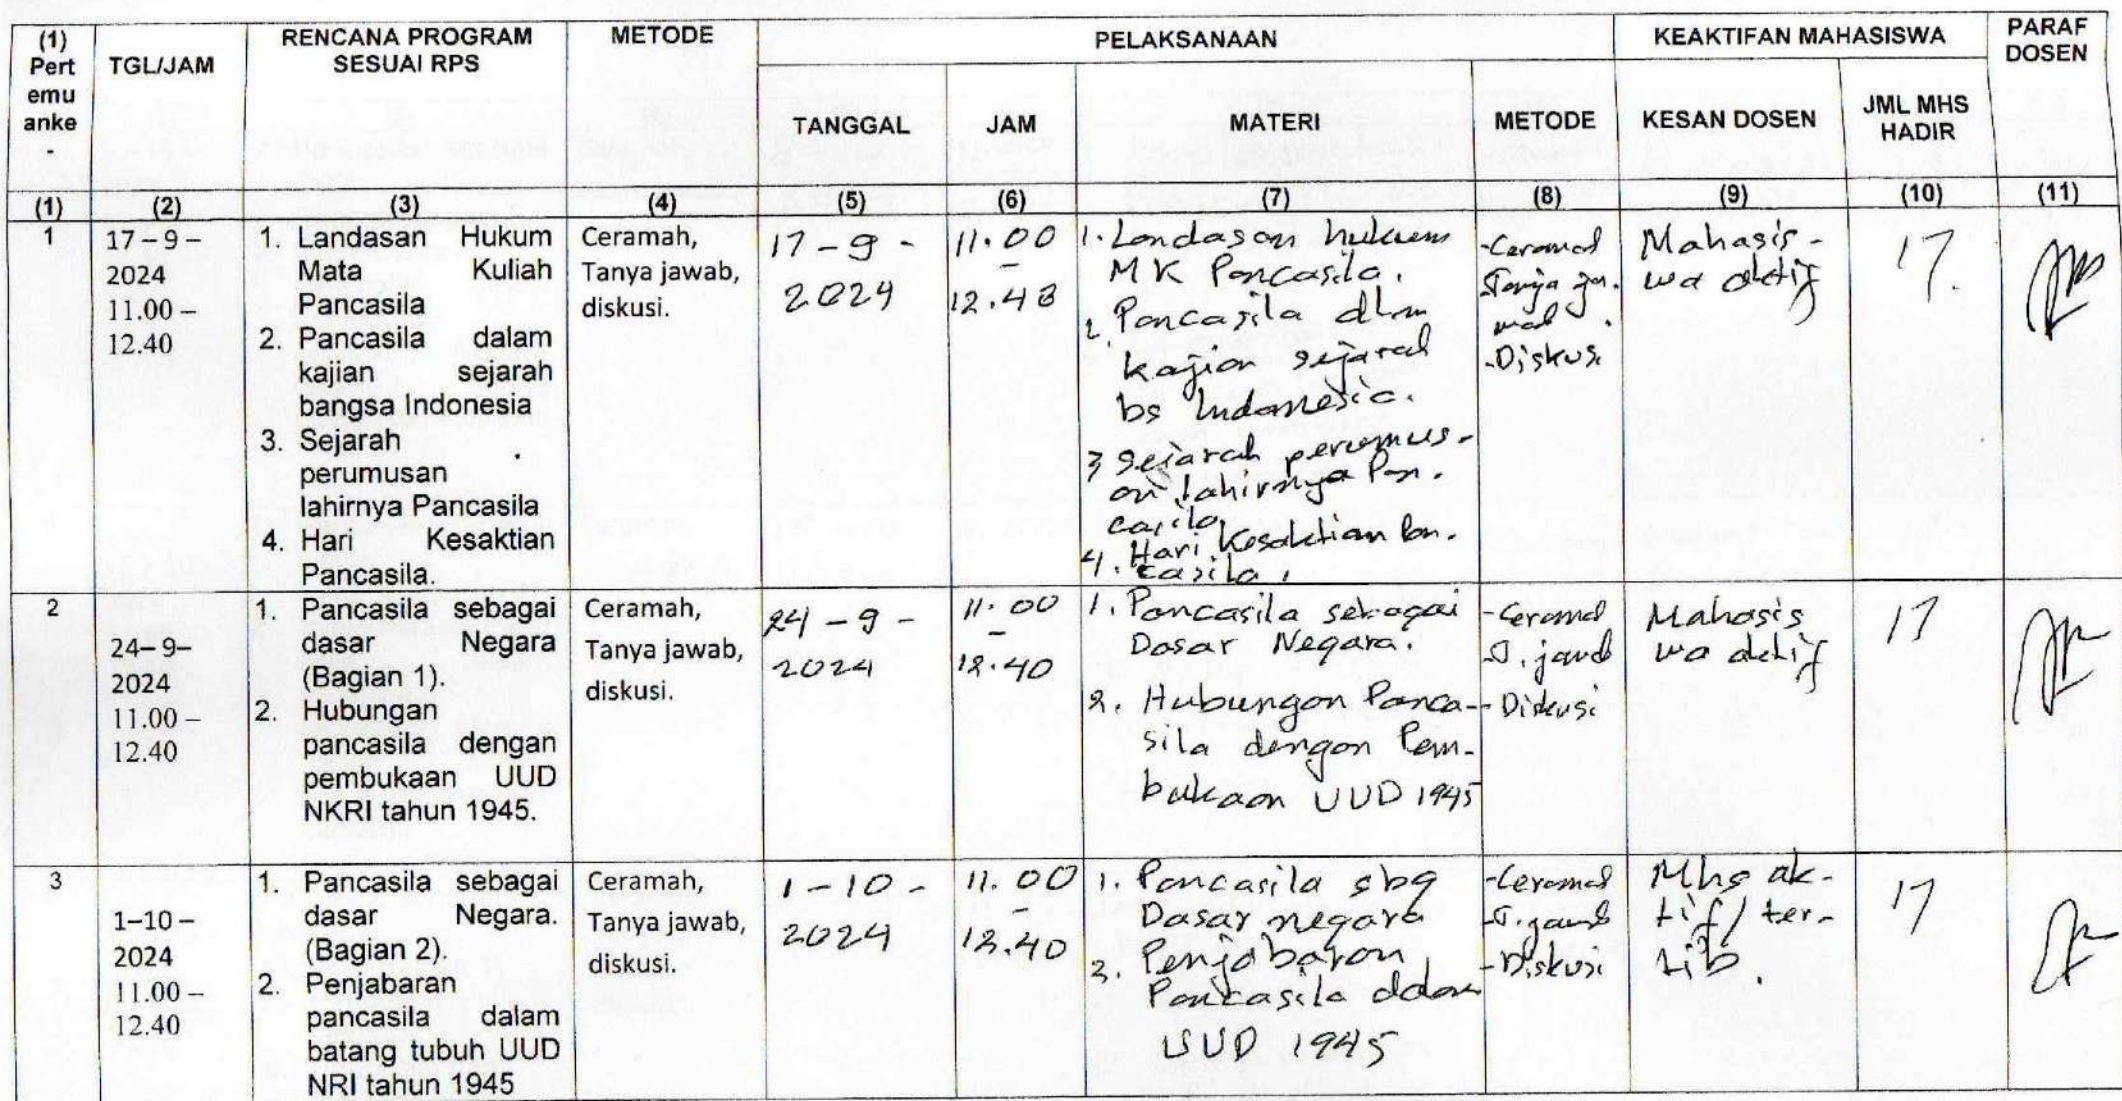 (1) Pert emu anke . TGL/JAM RENCANA PROGRAM SESUAI RPS METODE PELAKSANAAN KEAKTIFAN MAHASISWA PARAF DOSEN
TANGGAL JAM MATERI METODE KESAN DOSEN JML MHS HADIR
(1) (2) (3) (4) (5) (6) (7) (8) (9) (10) (11)
1
17 – 9 –
2024
11.00 –
12.40
1. Landasan Hukum
Mata Kuliah
Pancasila
2. Pancasila dalam
kajian sejarah
bangsa Indonesia
3. Sejarah
perumusan
lahirnya Pancasila
4. Hari Kesaktian
Pancasila.
Ceramah,
Tanya jawab,
diskusi.
17 – 9 -
2024
11.00
–
12.40
1. Landasan hukum
MK Pancasila.
2. Pancasila dlm
kajian sejarah
bs Indonesia.
3 Sejarah perumus-
an lahirnya Pan-
casila
4. Hari Kesaktian Pan-
casila.
- Ceramah
Tanya ja-
wab.
- Diskusi
Mahasis-
wa aktif
17.
2
24– 9–
2024
11.00 –
12.40
1. Pancasila sebagai
dasar Negara
(Bagian 1).
2. Hubungan
pancasila dengan
pembukaan UUD
NKRI tahun 1945.
Ceramah,
Tanya jawab,
diskusi.
24 – 9 -
2024
11.00
–
12.40
1. Pancasila sebagai
Dasar Negara.
2. Hubungan Panca-
sila dengan Pem-
bukaan UUD 1945
- Ceramah
T. jawab
- Diskusi
Mahasis
wa aktif
17
3
1–10 –
2024
11.00 –
12.40
1. Pancasila sebagai
dasar Negara.
(Bagian 2).
2. Penjabaran
pancasila dalam
batang tubuh UUD
NRI tahun 1945
Ceramah,
Tanya jawab,
diskusi.
1 – 10 -
2024
11.00
–
12.40
1. Pancasila sbg
Dasar negara
2. Penjabaran
Pancasila dalam
UUD 1945
- Ceramah
- T. jawab
- Diskusi
Mhs ak-
tif / ter-
tib.
17